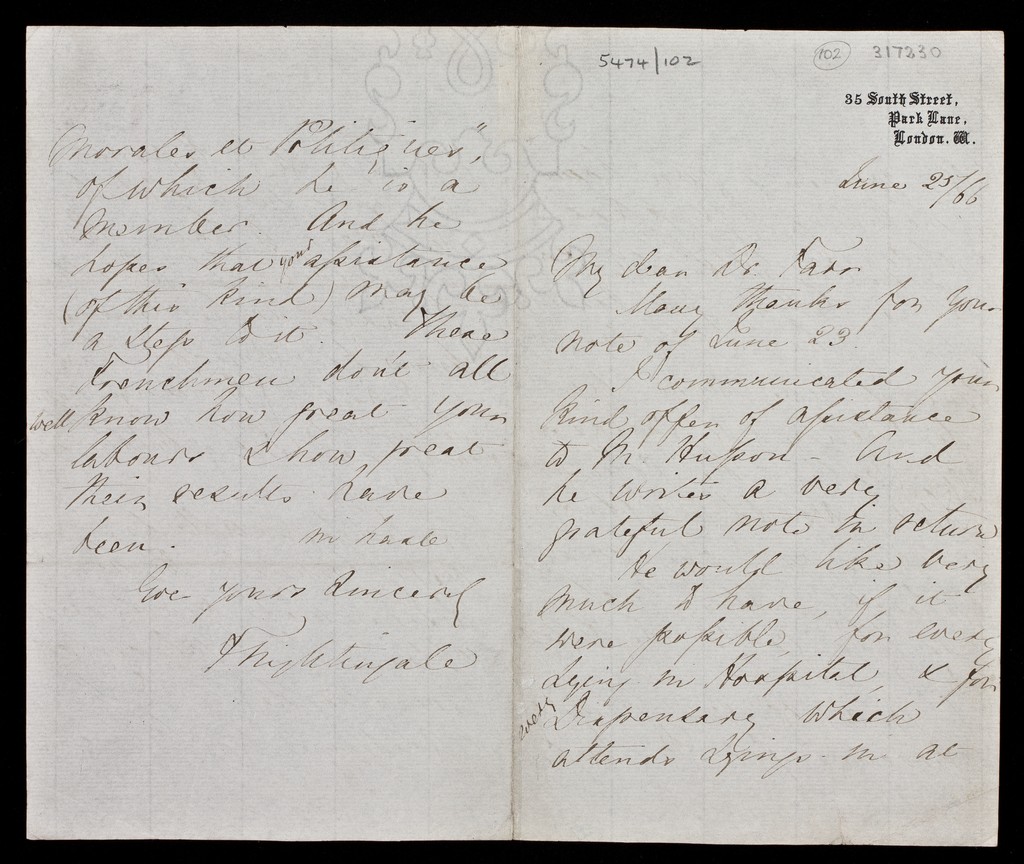 5474/102
102
317330
35 South Street,
Park Lane,
London. W.
June 25/66
My dear Dr. Farr
Many thanks for your
note of June 23.
I communicated your
kind offer of assistance
to M. Husson - And
he writes a very
grateful note in return
He would like very
much to have, if it
were possible, for every
Lying in Hospital, & for
every Dispensary which
attends Lyings-in at
Morales et Politiques",
of which he is a
member. And he
hopes that your assistance
(of this kind) may be
a step to it. These
Frenchmen don't all
well know how great your
labours & how great
their results have
been. in haste
Ever yours sincerely
F Nightingale